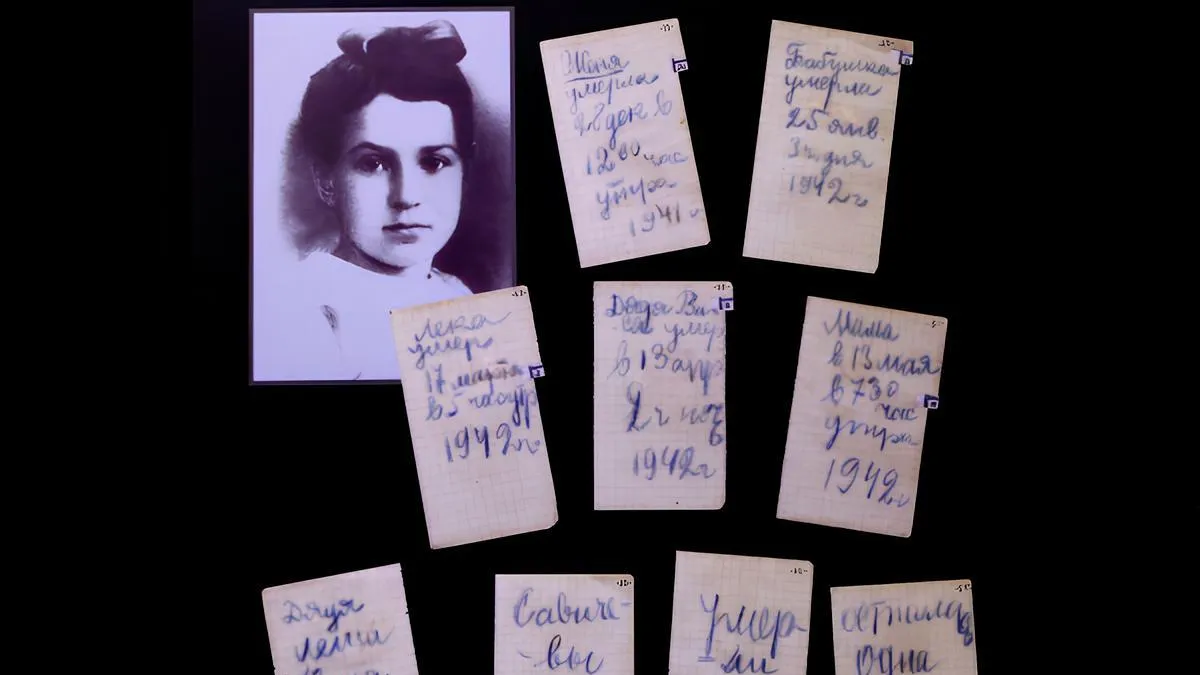 Женя
умерла
28 дек в
12 00 час
утра
1941 г
Бабушка
умерла
25 янв.
3 ч. дня
1942 г
Лека
умер
17 марта
в 5 час утр
1942 г
Дядя Ва-
ся умер
в 13 апр
2 ч ноч
1942 г
Мама
в 13 мая
в 7 30
час
утра
1942 г
Дядя
Леша
Савиче-
-вы
Умер
ли
осталась
одна